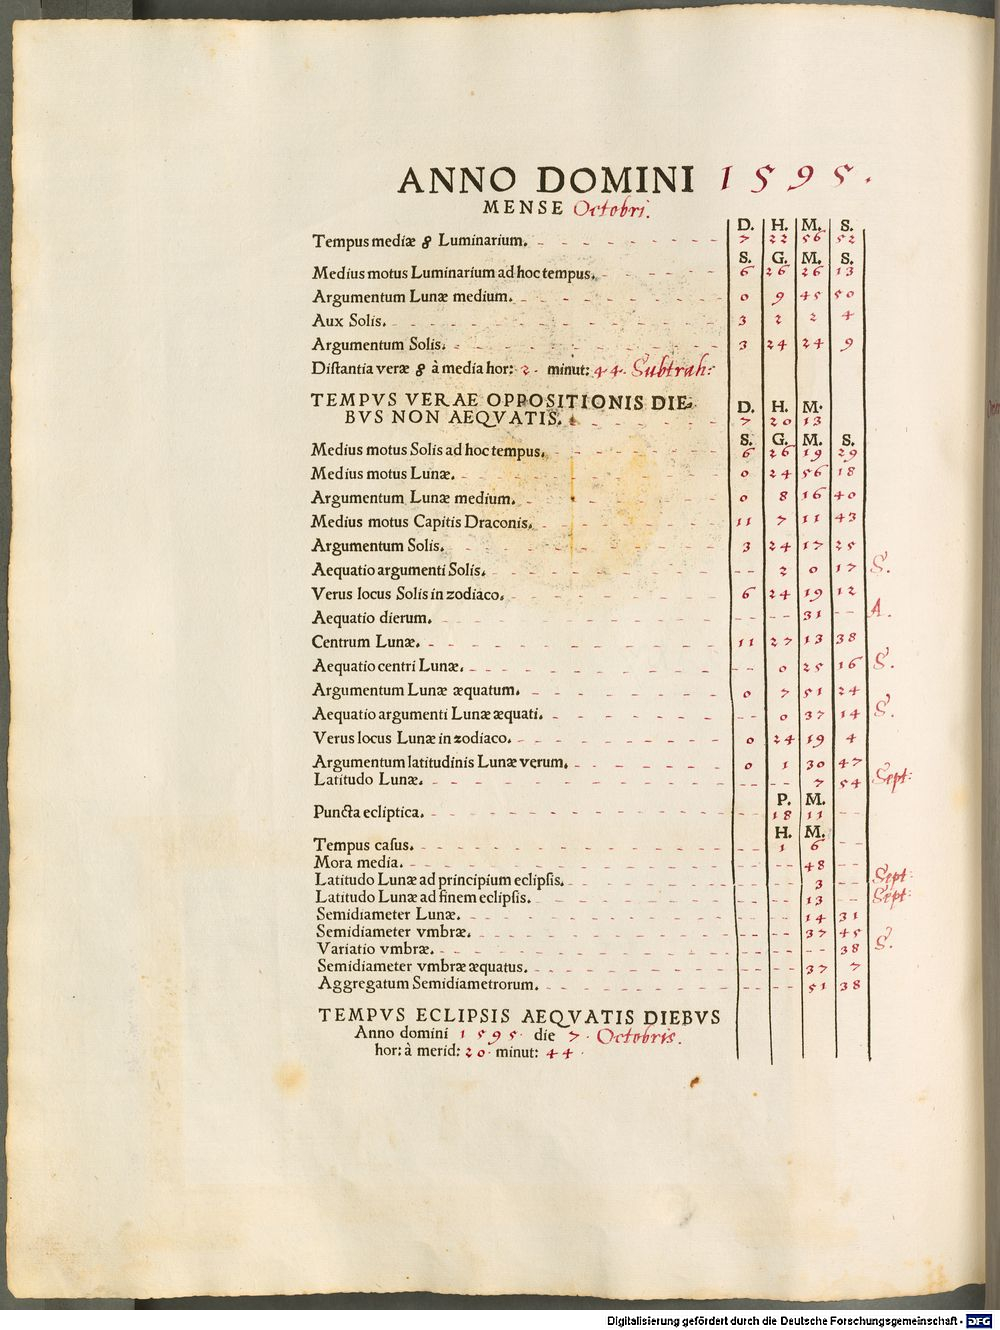 ANNO DOMINI 1595.
MENSE Octobri.
D. H. M. S.
Tempus mediæ ☍ Luminarium. 7 22 56 52
S. G. M. S.
Medius motus Luminarium ad hoc tempus. 6 26 26 13
Argumentum Lunæ medium. 0 9 45 50
Aux Solis. 3 2 2 4
Argumentum Solis. 3 24 24 9
Distantia veræ ☍ à media hor: 2. minut: 44. Subtrah:
TEMPVS VERAE OPPOSITIONIS DIE- D. H. M.
BVS NON AEQVATIS. 7 20 13
S. G. M. S.
Medius motus Solis ad hoc tempus. 6 26 19 29
Medius motus Lunæ. 0 24 56 18
Argumentum Lunæ medium. 0 8 16 40
Medius motus Capitis Draconis. 11 7 11 43
Argumentum Solis. 3 24 17 25
Aequatio argumenti Solis. -- 2 0 17 S.
Verus locus Solis in zodiaco. 6 24 19 12
Aequatio dierum. -- -- 31 -- A.
Centrum Lunæ. 11 27 13 38
Aequatio centri Lunæ. -- 0 25 16 S.
Argumentum Lunæ æquatum. 0 7 51 24
Aequatio argumenti Lunæ æquati. -- 0 37 14 S.
Verus locus Lunæ in zodiaco. 0 24 19 4
Argumentum latitudinis Lunæ verum. 0 1 30 47
Latitudo Lunæ. -- -- 7 54 Sept:
P. M.
Puncta ecliptica. -- 18 11 --
H. M.
Tempus casus. -- 1 6 --
Mora media. -- -- 48 --
Latitudo Lunæ ad principium eclipsis. -- -- 3 -- Sept:
Latitudo Lunæ ad finem eclipsis. -- -- 13 -- Sept:
Semidiameter Lunæ. -- -- 14 31
Semidiameter vmbræ. -- -- 37 45
Variatio vmbræ. -- -- -- 38 S.
Semidiameter vmbræ æquatus. -- -- 37 7
Aggregatum Semidiametrorum. -- -- 51 38
TEMPVS ECLIPSIS AEQVATIS DIEBVS
Anno domini 1595. die 7. Octobris.
hor: à merid: 20. minut: 44.
Digitalisierung gefördert durch die Deutsche Forschungsgemeinschaft - DFG